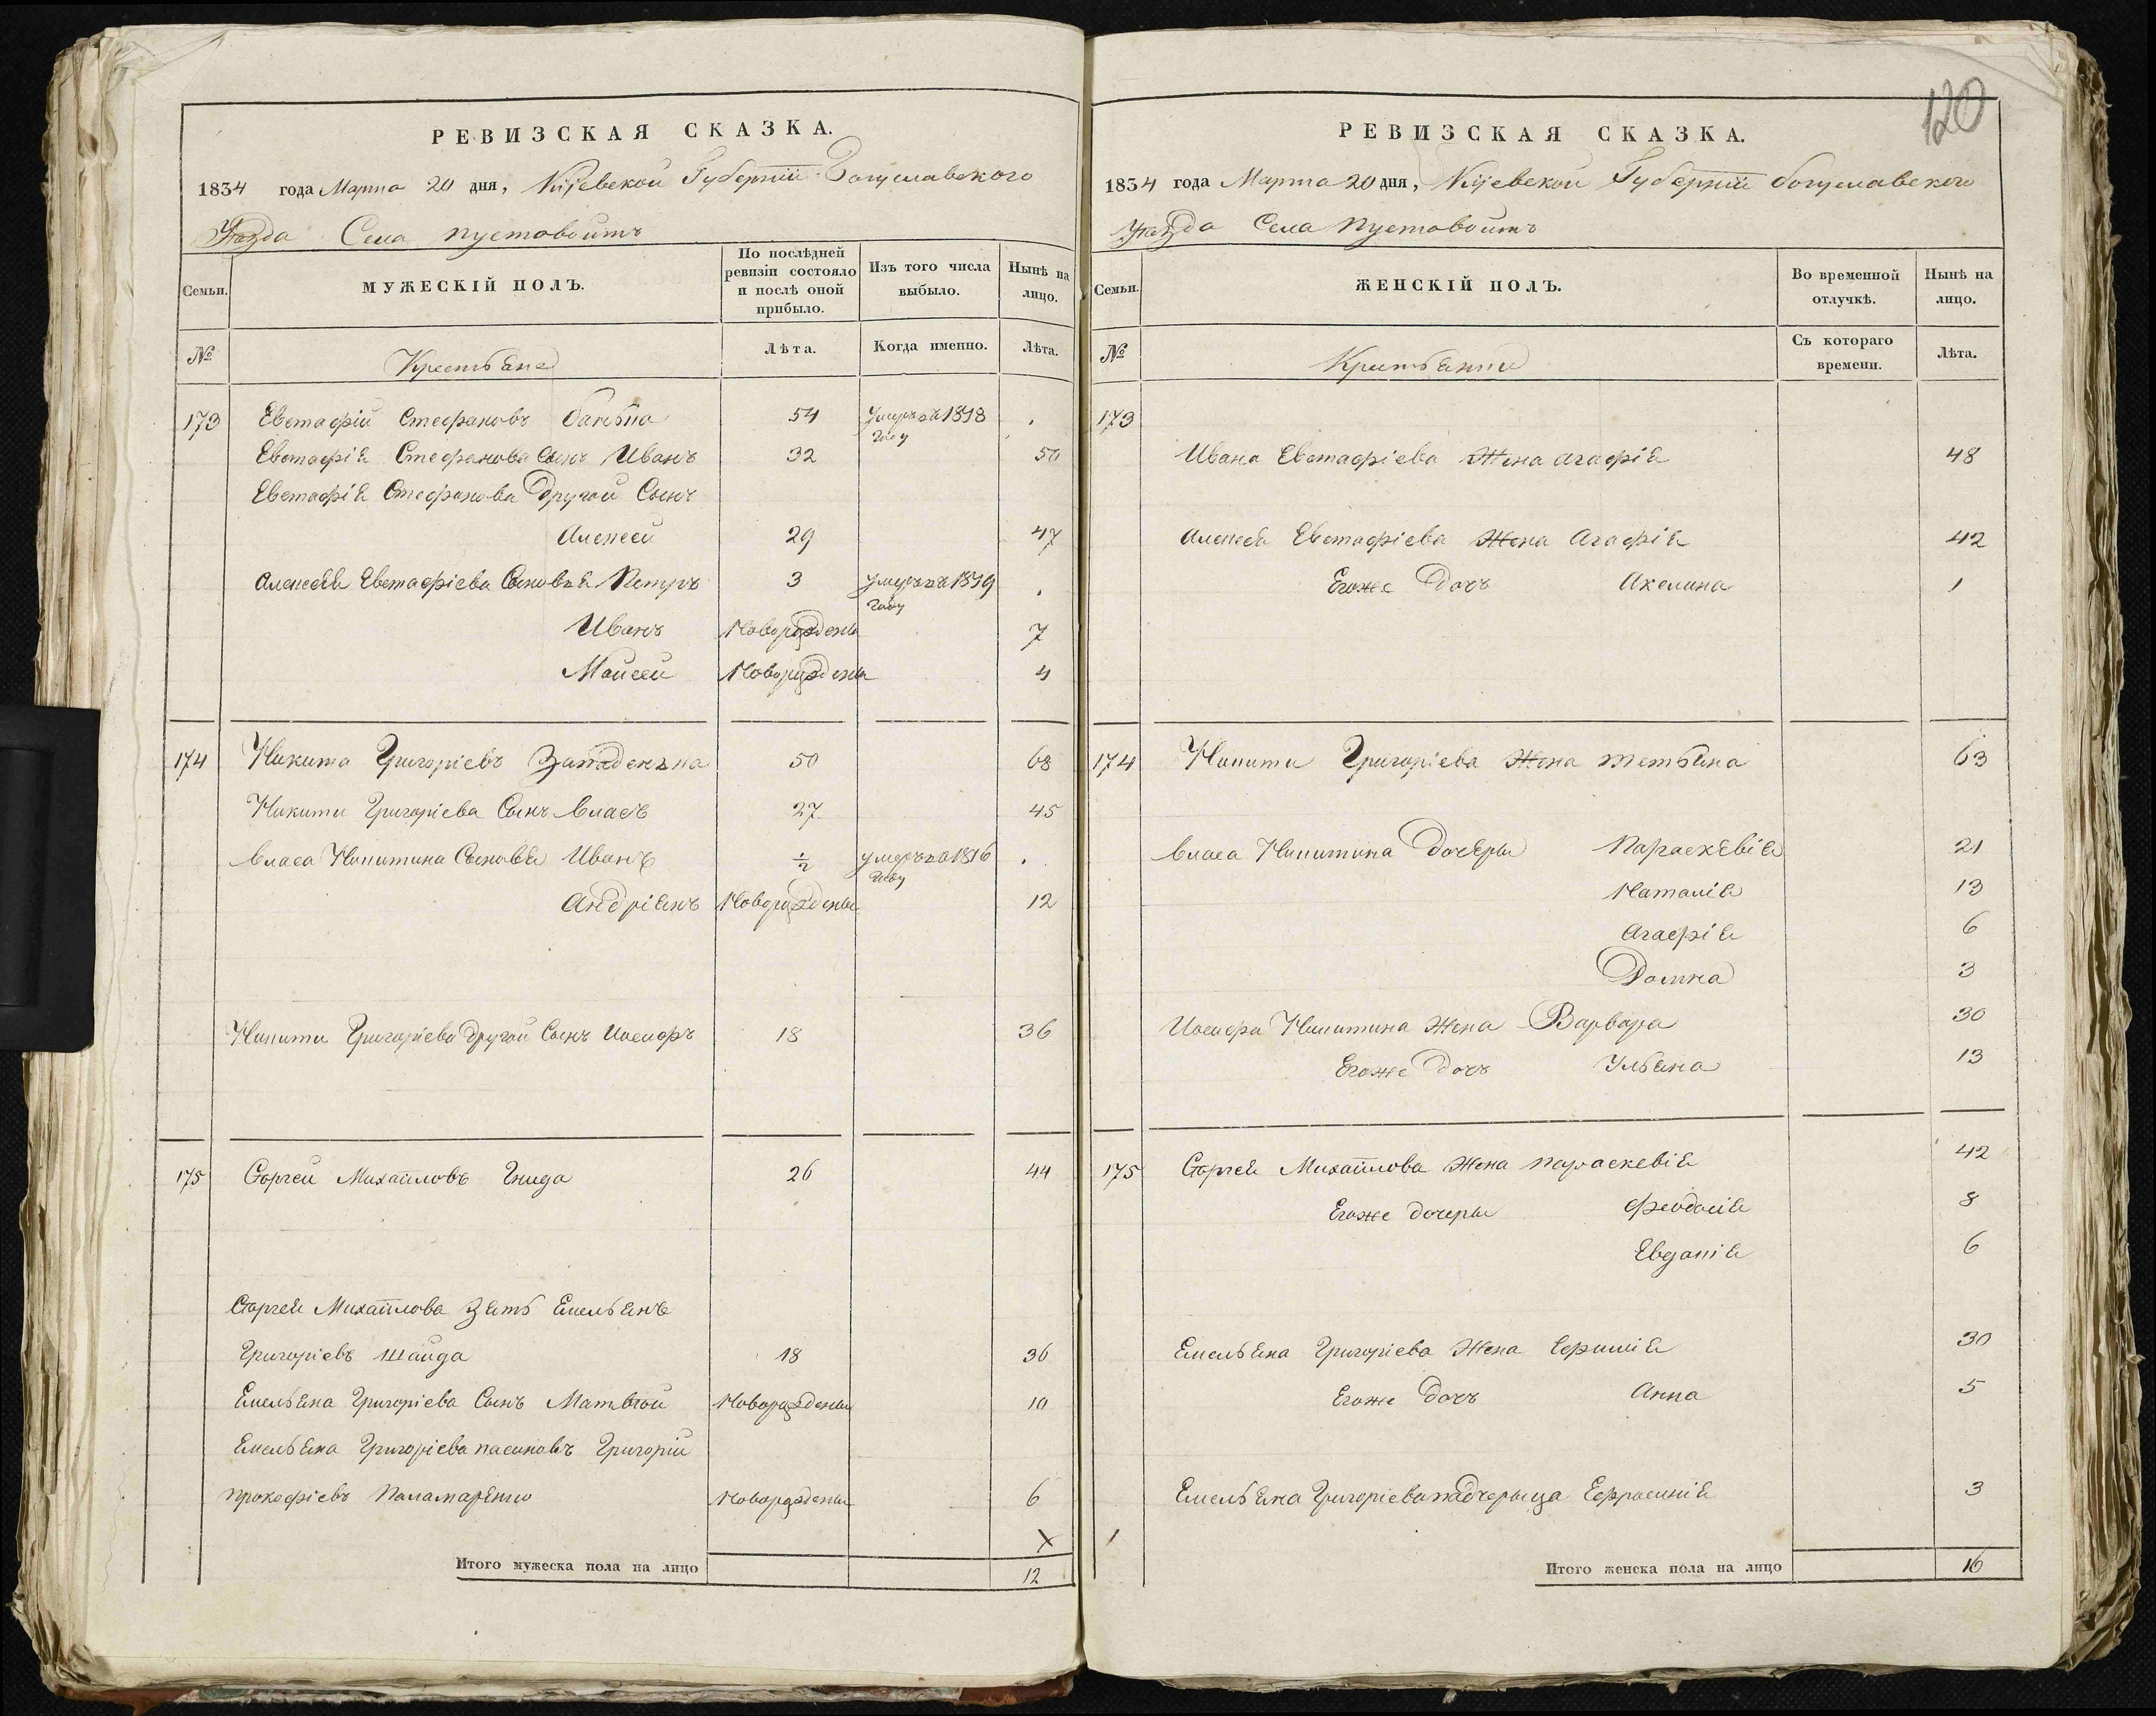 120
РЕВИЗСКАЯ СКАЗКА.
1834 года Марта 20 дня, Кіевской Губерніи Богуславского
Уезда Села пустовойтъ
Семьи. МУЖЕСКІЙ ПОЛЪ. По послѣдней ревизіи состояло и послѣ оной прибыло. Изъ того числа выбыло. Нынѣ на лицо.
№ Крестьяне Лѣта. Когда именно. Лѣта.
173 Евстафій Стефановъ 54 умеръ въ 1818 году .
Евстафія Стефанова Сынъ Иванъ 32 50
Евстафія Стефанова Другой Сынъ
Алексей 29 47
Алексея Евстафіева Сыновья Петръ 3 умеръ въ 1819 году .
Иванъ Новорожденны 7
Мойсей Новорожденны 4
174 Никита Григоріевъ 50 68
Никиты Григоріева Сынъ Власъ 27 45
Власа Никитина Сыновья Иванъ 1/2 умеръ въ 1816 году .
Андріянъ Новорожденны 12
Никиты Григоріева Другой Сынъ Иосифъ 18 36
175 Сергей Михайловъ Гнида 26 44
Сергея Михайлова Зять Емельянъ
Григоріевъ Шайда 18 36
Емельяна Григоріева Сынъ Матвей Новорожденны 10
Емельяна Григоріева пасинокъ Григорій
Прокофіевъ Паламаренко Новорожденны 6
Х
Итого мужеска пола на лицо 12
РЕВИЗСКАЯ СКАЗКА.
1834 года Марта 20 дня, Кіевской Губерніи богуславского
Уезда Села Пустовойтъ
Семьи. ЖЕНСКІЙ ПОЛЪ. Во временной отлучкѣ. Нынѣ на лицо.
№ Съ котораго времени. Лѣта.
173
Ивана Евстафіева Жена агафія 48
Алексея Евстафіева Жена Агафія 42
Егоже Дочь Акелина 1
174 Никиты Григоріева Жена тетьяна 63
Власа Никитина Дочеры Параскевія 21
Наталія 13
Агафія 6
Домна 3
Иосифа Никитина Жена Варвара 30
Егоже Дочь Ульяна 13
175 Сергея Михайлова Жена параскевія 42
Егоже дочеры Феодосія 8
6
Емельяна Григоріева Жена 30
Егоже Дочь Анна 5
Емельяна Григоріева падчерыца Ефросинія 3
Итого женска пола на лицо 16